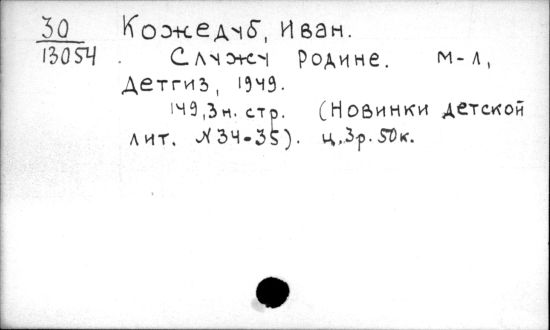 30 Кожедуб, Иван.
13054 . Служу Родине. М-Л,
Детгиз, 1949.
149, 3 н. стр. (Новинки детской
лит. № 34-35). ц. 3 р. 50 к.